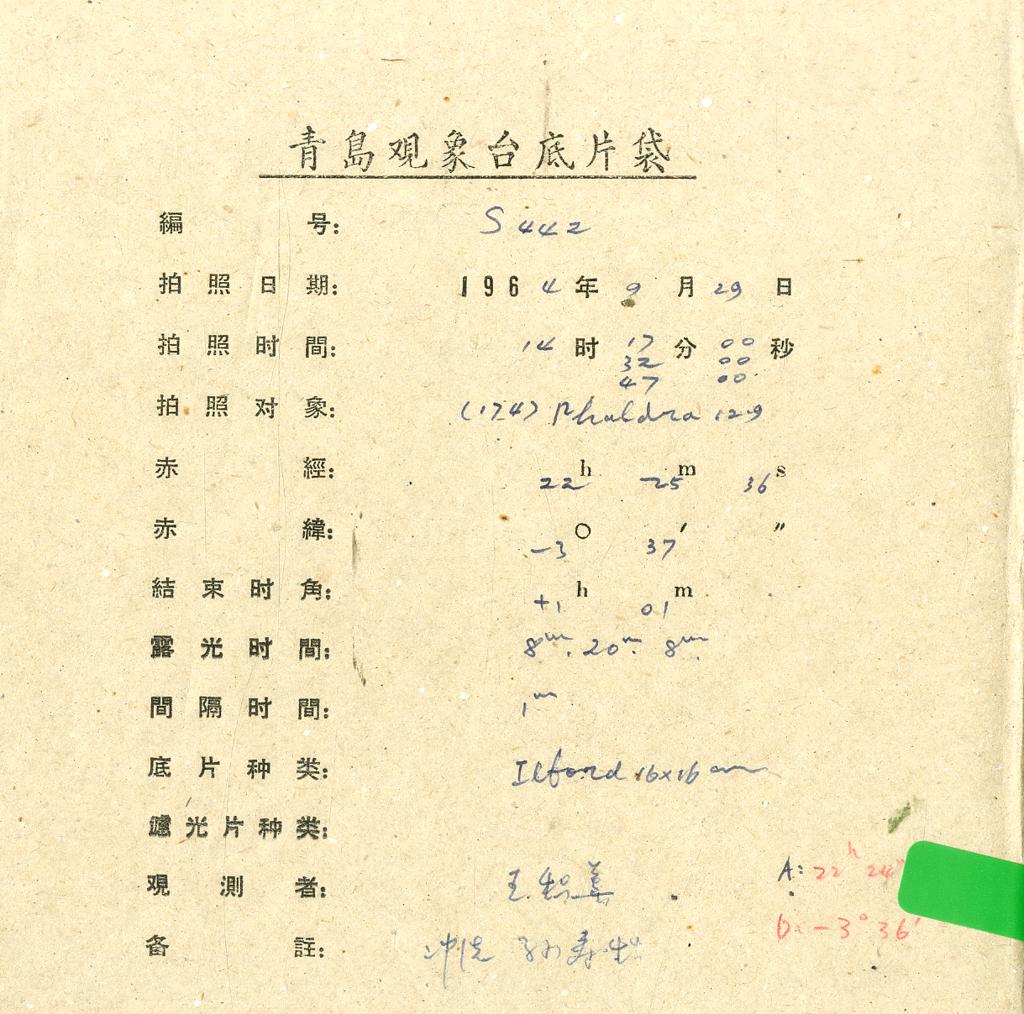 青島观象台底片袋
編 号: S 442
拍照日期: 1964年9月29日
拍照时間: 14时17分00秒
32 00
47 00
拍照对象: (174) Phaldra 129
赤 經: 22h 25m 36s
赤 緯: -3° 37′ ″
結束时角: +1h 01m
露光时間: 8m. 20m. 8m.
間隔时間: 1m
底片种类: Ilford 16x16 cm
濾光片种类:
观測者: 王
A: 22h 24m
D: -3° 36′
备 註: 冲洗 孙寿